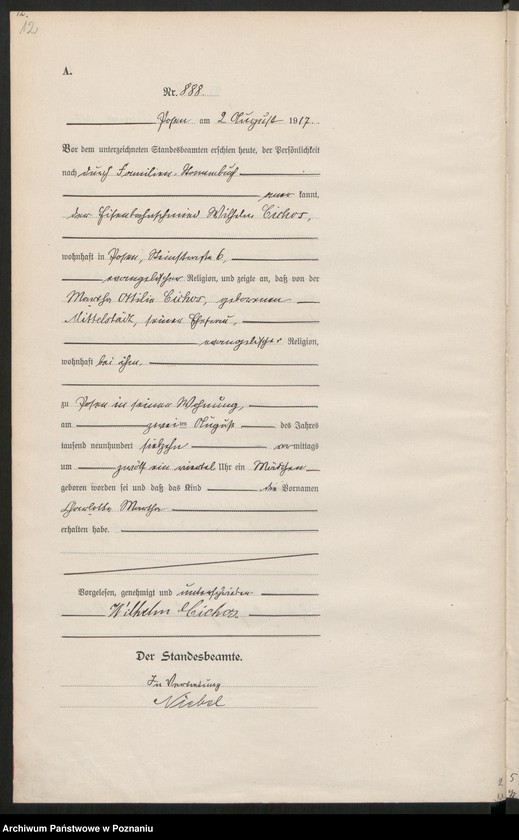 12.
12
A.
Nr. 888.
Posen am 2 August 1917.
Vor dem unterzeichneten Standesbeamten erschien heute, der Persönlichkeit
nach durch Familien-Stammbuch
aner kannt,
der Eisenbahnschmied Wilhelm Cichos,
wohnhaft in Posen, Steinstraße 6,
evangelischer Religion, und zeigte an, daß von der
Martha Ottilie Cichos, geborenen
Mittelstädt, seiner Ehefrau,
evangelischer Religion,
wohnhaft bei ihm
zu Posen in seiner Wohnung,
am zweiten August des Jahres
tausend neunhundert siebzehn vormittags
um zwölf ein viertel Uhr ein Mädchen
geboren worden sei und daß das Kind die Vornamen
Charlotte Martha
erhalten habe.
Vorgelesen, genehmigt und unterschrieben
Wilhelm Cichos
Der Standesbeamte.
In Vertretung
Niebel
Archiwum Państwowe w Poznaniu